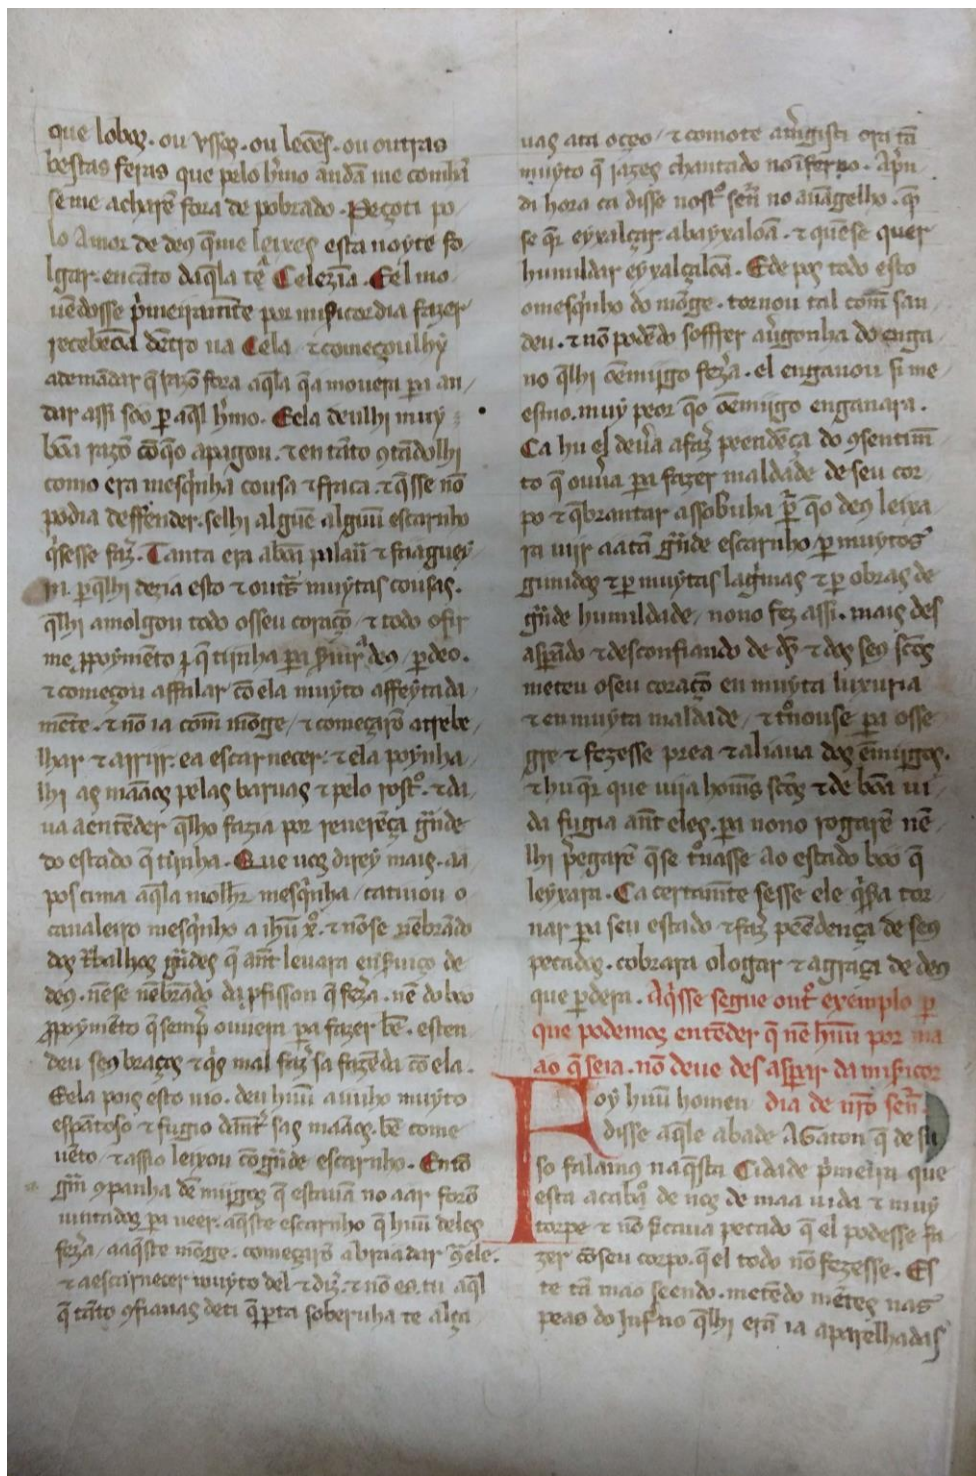 que lobos. ou vssos. ou leoẽs. ou outras
bestas feras que pelo h̓mo andã me comhã
se me acharẽ fora de pobrado. Peçoti po
lo Amor de deus q̃ me leixes esta noyte fo
lgar. encãto daq̃la tẽ Celezĩa. E el mo
uẽdosse p̓meiramẽte por mis̓icordia fazer
recebeoa dẽtro na Cela ⁊ começoulhy
ademãdar q̃ razõ fora aq̃la q̃a mouera pa an
dar assi soo ꝑ aq̃l h̓mo. E ela deulhi muy
bõa razõ cõ q̃o apagou. ⁊ en tãto ꝯtãdolhi
como era mesq̓nha cousa ⁊ fraca. ⁊ q̃sse nõ
podia deffẽnder. selhi alguẽ alguũ escarnho
q̓sesse faz̓. Tanta era abõa palaũ ⁊ faaguey
ra. ꝑ q̃lhi dezia esto ⁊ out̃s muytas cousas.
q̃lhi amolgou todo osseu coraçõ ⁊ todo ofir
me ꝓpoymẽto q̃ tijnha pa s̓uir̓ deus / ꝑdeo.
⁊ começou affalar cõ ela muyto affeytada
mẽte. ⁊ nõ ia com̃ mõge / ⁊ começarõ atrebe
lhar ⁊ arrijr. ea escarnecer. ⁊ ela poynha
lhi as mãaos pelas baruas ⁊ pelo rost̓o. ⁊ da
ua aentẽder q̃lho fazia por reuerẽça g̃nde
do estado q̃ tijnha. Que uos direy mais. aa
postuma aq̃la molh̓ mesq̓nha / catiuou o
caualeiro mesq̓nho a jh̃u x̃o. ⁊ nõse nẽbrãdo
dos t̃balhos g̃ndes q̃ ant̃ leuara en s̓uiço de
deus. nẽse nẽbrãdo da ꝓfisson q̃ fez̓a. nẽ do boo
ꝓpoymẽto q̃ semp̃ ouuera pa fazer bẽ. esten
deu seus braços ⁊ q̓s mal faz̓ sa fazẽda cõ ela.
E ela pois esto uio. deu huũ auuho muyto
espãtoso ⁊ fugio dãnt̓ sas mãaos. bẽ come
uẽto / ⁊ assio leixou cõ g̃nde escarnho. Entõ
g̃m ꝯpanha dẽmijgos q̃ estauã no aar forõ
iuntados pa ueer. aq̃ste escarnho q̃ huũ deles
fez̓a / aaq̃ste mõge. começarõ abraadar cõele.
⁊ aescarnecer muyto del ⁊ diz̓. ⁊ nõ es tu aq̃l
q̃ tãto ꝯfiauas deti q̃ ꝑ ta soberuha te alça
uas ata oçeo / ⁊ comote am̓gisti ora tã
muyto q̃ iazes chantado no ĩferno. Ap̃n
di hora ca disse nost̓o sen̓ no auãgelho. q̃
se q̃r eyxalçar abayxaloã. ⁊ quẽse quer
humildar eyxalçaloã. E de pos todo esto
omesq̓nho do mõge. tornou tal com̃ san
deu. ⁊ nõ podẽdo soffrer au̓gonha do enga
no q̃lhi oẽmijgo fez̓a. el enganou si me
esmo. muy peor q̃o oẽmijgo enganara.
Ca hu el deu̓a afaz̓ peendẽça do ꝯsentimẽ
to q̃ ouu̓a pa fazer maldade de seu cor
po ⁊ q̃brantar assobuha ꝑ q̃o deus leixa
ra uijr aatã g̃nde escarnho. ꝑ muytos
gimidos ⁊ ꝑ muytas lag̓mas ⁊ ꝑ obras de
g̃nde humildade / nono fez assi. mais des
asꝑãdo ⁊ desconfiando de d̃s ⁊ dos seus sc̃os
meteu oseu coraçõ en muyta luxuria
⁊ en muyta maldade / ⁊ t̓nouse pa osse
gre ⁊ fezesse prea ⁊ aliaua dos ẽmijgos.
⁊ hu q̃r que uija homẽs sc̃os ⁊ de bõa ui
da fugia ant̃ eles. pa nono rogarẽ nẽ
lhi p̓garẽ q̃se t̓nasse ao estado boo q̃
leyxara. Ca certam̃te sesse ele q̓s̓a tor
nar pa seu estado ⁊ faz̓ peẽdença de seus
pecados. cobrara ologar ⁊ agraça de deus
que ꝑdera. Aq̓sse segue out̓ exemplo ꝑ
que podemos entẽder q̃ nẽ huũ por ma
ao q̃ seia. nõ deue des asꝑar da mis̓icor
dia de nr̃o sen̓.
Foy huũ homen
disse aq̃le abade AGaton q̃ de su
so falamus naq̃sta Cidade p̓meira que
esta acabo de nos de maa uida ⁊ muy
torpe ⁊ nõ ficaua pecado q̃ el podesse fa
zer cõ seu corpo. q̃ el todo nõ fezesse. Es
te tã mao seendo. metẽdo mẽtes nas
peas do Inf̓no q̃lhi erã ia aparelhadas